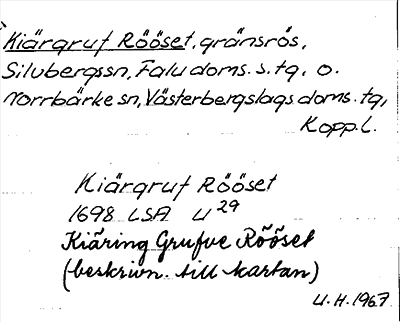 Kiärgruf Rööset, gränsrös,
Silvbergssn, Falu doms. s. tg, o.
Norrbärke sn, Västerbergslags doms. tg,
Kopp.l.
Kiärgruf Rööset
1698 LSA U 29
Kiäring Grufve Rööset
(beskrivn. till kartan)
U.H. 1967